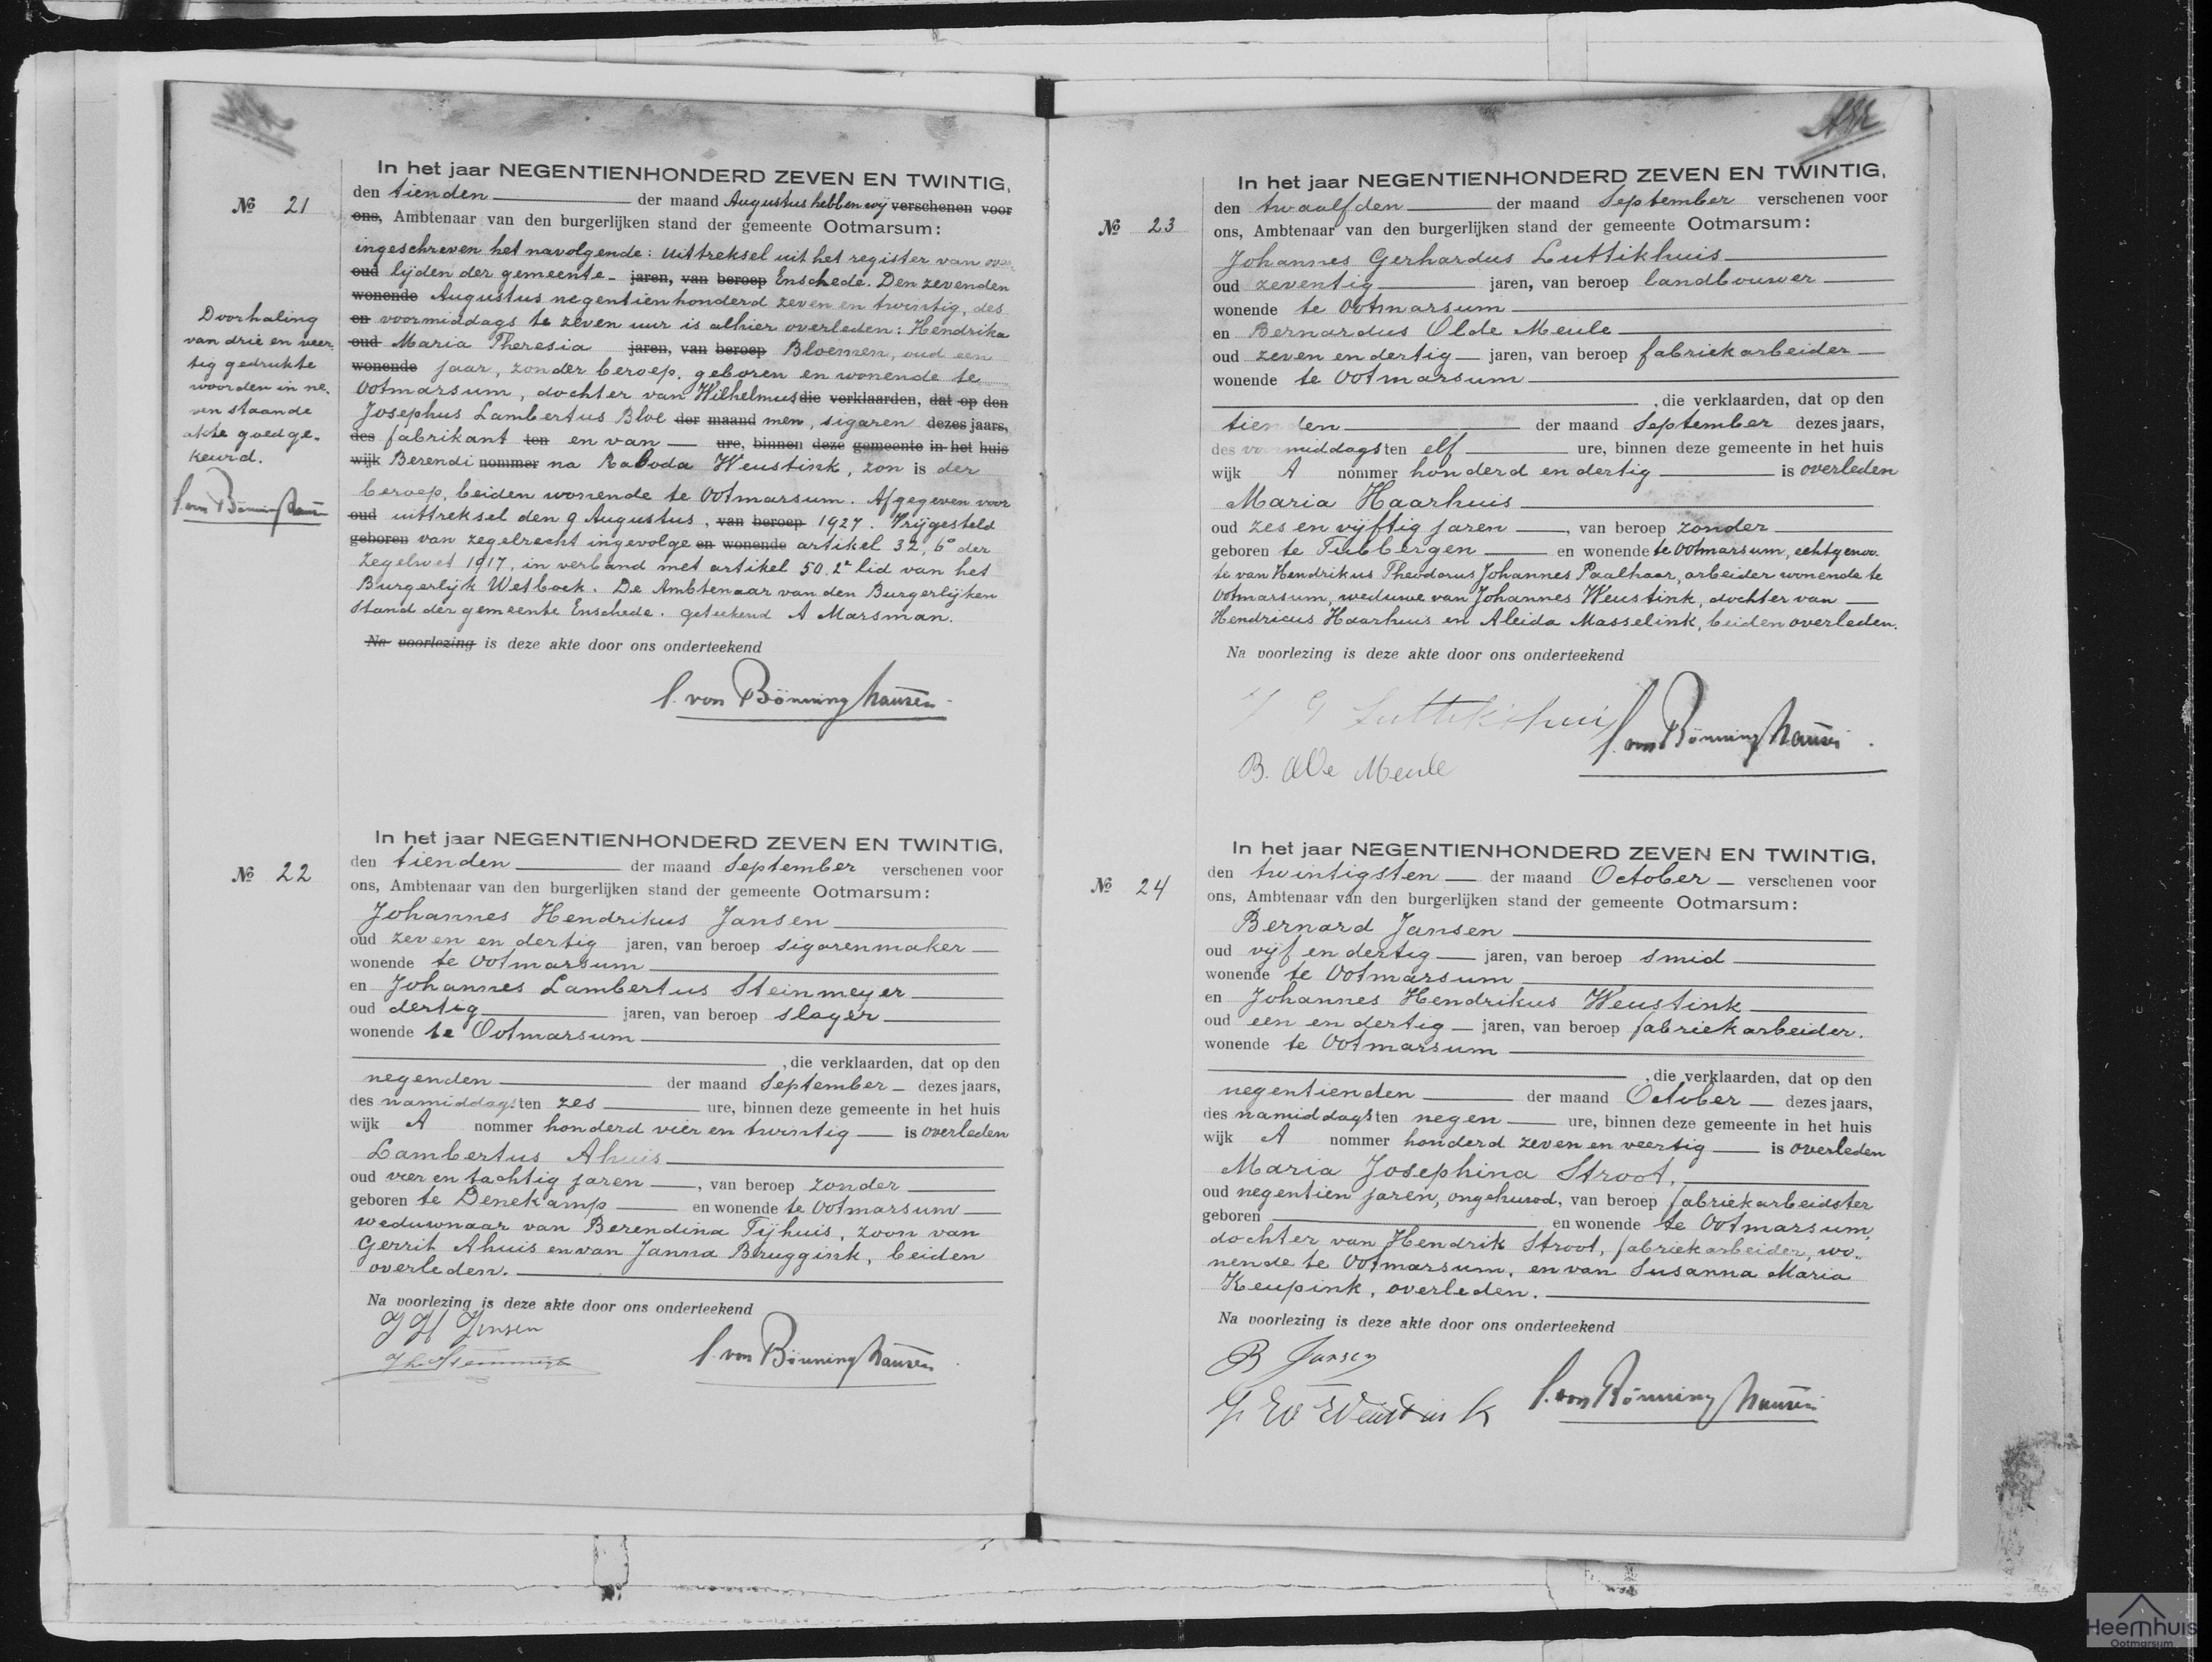 In het jaar NEGENTIENHONDERD ZEVEN EN TWINTIG,
№ 21
den tienden der maand Augustus hebben wij verschenen voor
ons, Ambtenaar van den burgerlijken stand der gemeente Ootmarsum:
ingeschreven het navolgende: Uittreksel uit het register van over
oud lijden der gemeente jaren, van beroep Enschede. Den zevenden
wonende Augustus negentienhonderd zeven en twintig, des
en voormiddags te zeven uur is alhier overleden: Hendrika
oud Maria Theresia jaren, van beroep Bloemen, oud een
wonende jaar, zonder beroep, geboren en wonende te
Ootmarsum, dochter van Wilhelmus die verklaarden, dat op den
Josephus Lambertus Bloe der maand men, sigaren dezes jaars,
des fabrikant ten en van ure, binnen deze gemeente in het huis
wijk Berendi nommer na Raboda Weustink, zon is der
beroep, beiden wonende te Ootmarsum. Afgegeven voor
oud uittreksel den 9 Augustus, van beroep 1927. Vrijgesteld
geboren van zegelrecht ingevolge en wonende artikel 32, 6° der
Zegelwet 1917, in verband met artikel 50, 2e lid van het
Burgerlijk Wetboek. De Ambtenaar van den Burgerlijken
Stand der gemeente Enschede. geteekend A Marsman.
Na voorlezing is deze akte door ons onderteekend
von Bönninghausen
Doorhaling
van drie en veer-
tig gedrukte
woorden in ne-
ven staande
akte goedge-
keurd.
von Bönninghausen
In het jaar NEGENTIENHONDERD ZEVEN EN TWINTIG,
№ 22
den tienden der maand September verschenen voor
ons, Ambtenaar van den burgerlijken stand der gemeente Ootmarsum:
Johannes Hendrikus Jansen
oud zeven en dertig jaren, van beroep sigarenmaker
wonende te Ootmarsum
en Johannes Lambertus Steinmeyer
oud dertig jaren, van beroep slager
wonende te Ootmarsum
, die verklaarden, dat op den
negenden der maand September dezes jaars,
des namiddags ten zes ure, binnen deze gemeente in het huis
wijk A nommer honderd vier en twintig is overleden
Lambertus Ahuis
oud vier en tachtig jaren, van beroep zonder
geboren te Denekamp en wonende te Ootmarsum
weduwnaar van Berendina Tijhuis, zoon van
Gerrit Ahuis en van Janna Bruggink, beiden
overleden.
Na voorlezing is deze akte door ons onderteekend
J H Jansen
von Bönninghausen
In het jaar NEGENTIENHONDERD ZEVEN EN TWINTIG,
№ 23
den twaalfden der maand September verschenen voor
ons, Ambtenaar van den burgerlijken stand der gemeente Ootmarsum:
Johannes Gerhardus Luttikhuis
oud zeventig jaren, van beroep landbouwer
wonende te Ootmarsum
en Bernardus Olde Meule
oud zeven en dertig jaren, van beroep fabriekarbeider
wonende te Ootmarsum
, die verklaarden, dat op den
tienden der maand September dezes jaars,
des voormiddags ten elf ure, binnen deze gemeente in het huis
wijk A nommer honderd en dertig is overleden
Maria Haarhuis
oud zes en vijftig jaren, van beroep zonder
geboren te Tubbergen en wonende te Ootmarsum, echtgenoo-
te van Hendrikus Theodorus Johannes Paalhaar, arbeider wonende te
Ootmarsum, weduwe van Johannes Weustink, dochter van
Hendricus Haarhuis en Aleida Masselink, beiden overleden.
Na voorlezing is deze akte door ons onderteekend
J G Luttikhuis
von Bönninghausen
B. Olde Meule
In het jaar NEGENTIENHONDERD ZEVEN EN TWINTIG,
№ 24
den twintigsten der maand October verschenen voor
ons, Ambtenaar van den burgerlijken stand der gemeente Ootmarsum:
Bernard Jansen
oud vijf en dertig jaren, van beroep smid
wonende te Ootmarsum
en Johannes Hendrikus Weustink
oud een en dertig jaren, van beroep fabriekarbeider.
wonende te Ootmarsum
, die verklaarden, dat op den
negentienden der maand October dezes jaars,
des namiddags ten negen ure, binnen deze gemeente in het huis
wijk A nommer honderd zeven en veertig is overleden
Maria Josephina Stroot,
oud negentien jaren, ongehuwd, van beroep fabriekarbeidster
geboren en wonende te Ootmarsum,
dochter van Hendrik Stroot, fabriekarbeider, wo-
nende te Ootmarsum, en van Susanna Maria
Keupink, overleden.
Na voorlezing is deze akte door ons onderteekend
B Jansen
Weustink
von Bönninghausen
Heemhuis
Ootmarsum